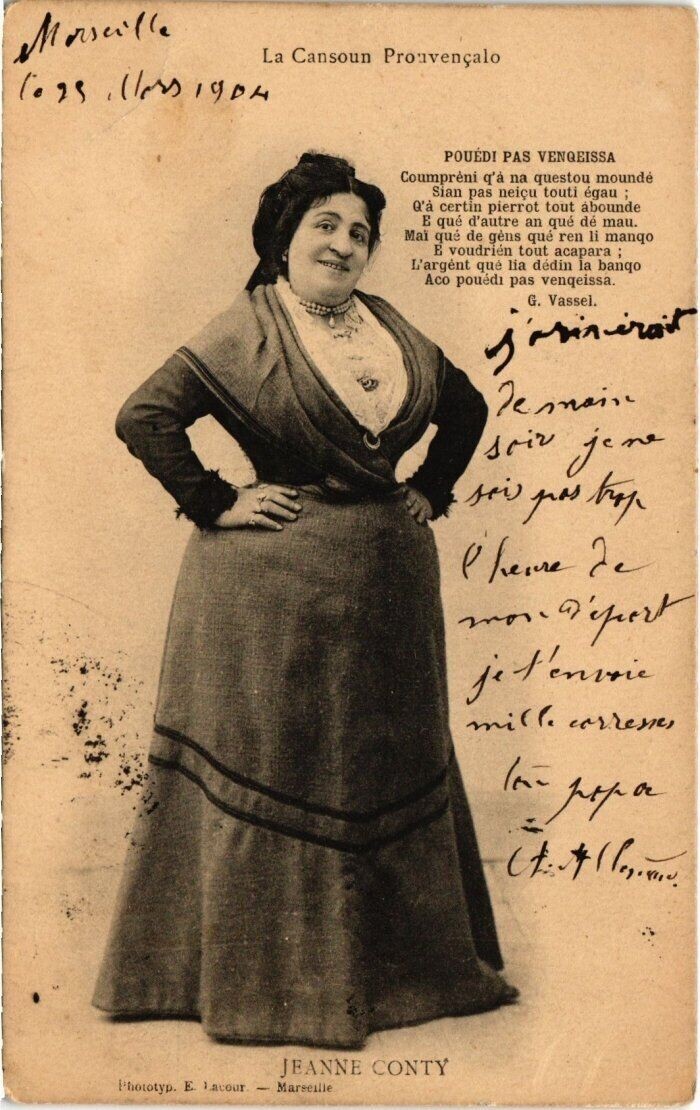 Marseille
le 25 Mars 1904
La Cansoun Prouvençalo
POUÉDI PAS VENQEISSA
Coumprèni q'à na questou moundé
Sian pas neiçu touti égau ;
Q'à certin pierrot tout àbounde
E qué d'autre an qué dé mau.
Maï qué de gèns qué ren li manqo
E voudrién tout acapara ;
L'argént qué lia dédin la banqo
Aco pouédi pas venqeissa.
G. Vassel.
j'arriverait
de main
soir je ne
sai pas trop
l'heure de
mon départ
je t'envoie
mille carresses
ton papa
JEANNE CONTY
Phototyp. E. Lacour. — Marseille